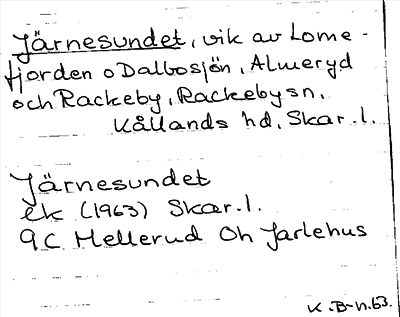 Järnesundet, vik av Lome-
fjorden o Dalbosjön, Almeryd
och Rackeby, Rackeby sn,
Kållands hd, Skar. l.
Järnesundet
ek (1963) Skar. l.
9C Mellerud Öh Jarlehus
K. B-n. 63.